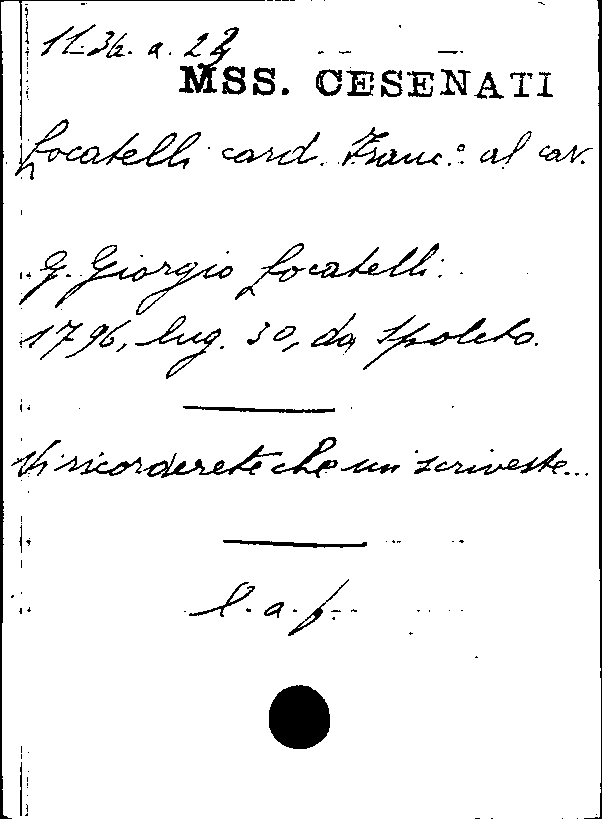 11.36. a. 22
MSS. CESENATI
Locatelli card. Franc.º al cav.
G. Giorgio Locatelli.
1796, lug. 30, da Spoleto.
Vi ricorderete che mi scriveste...
l. a. f.